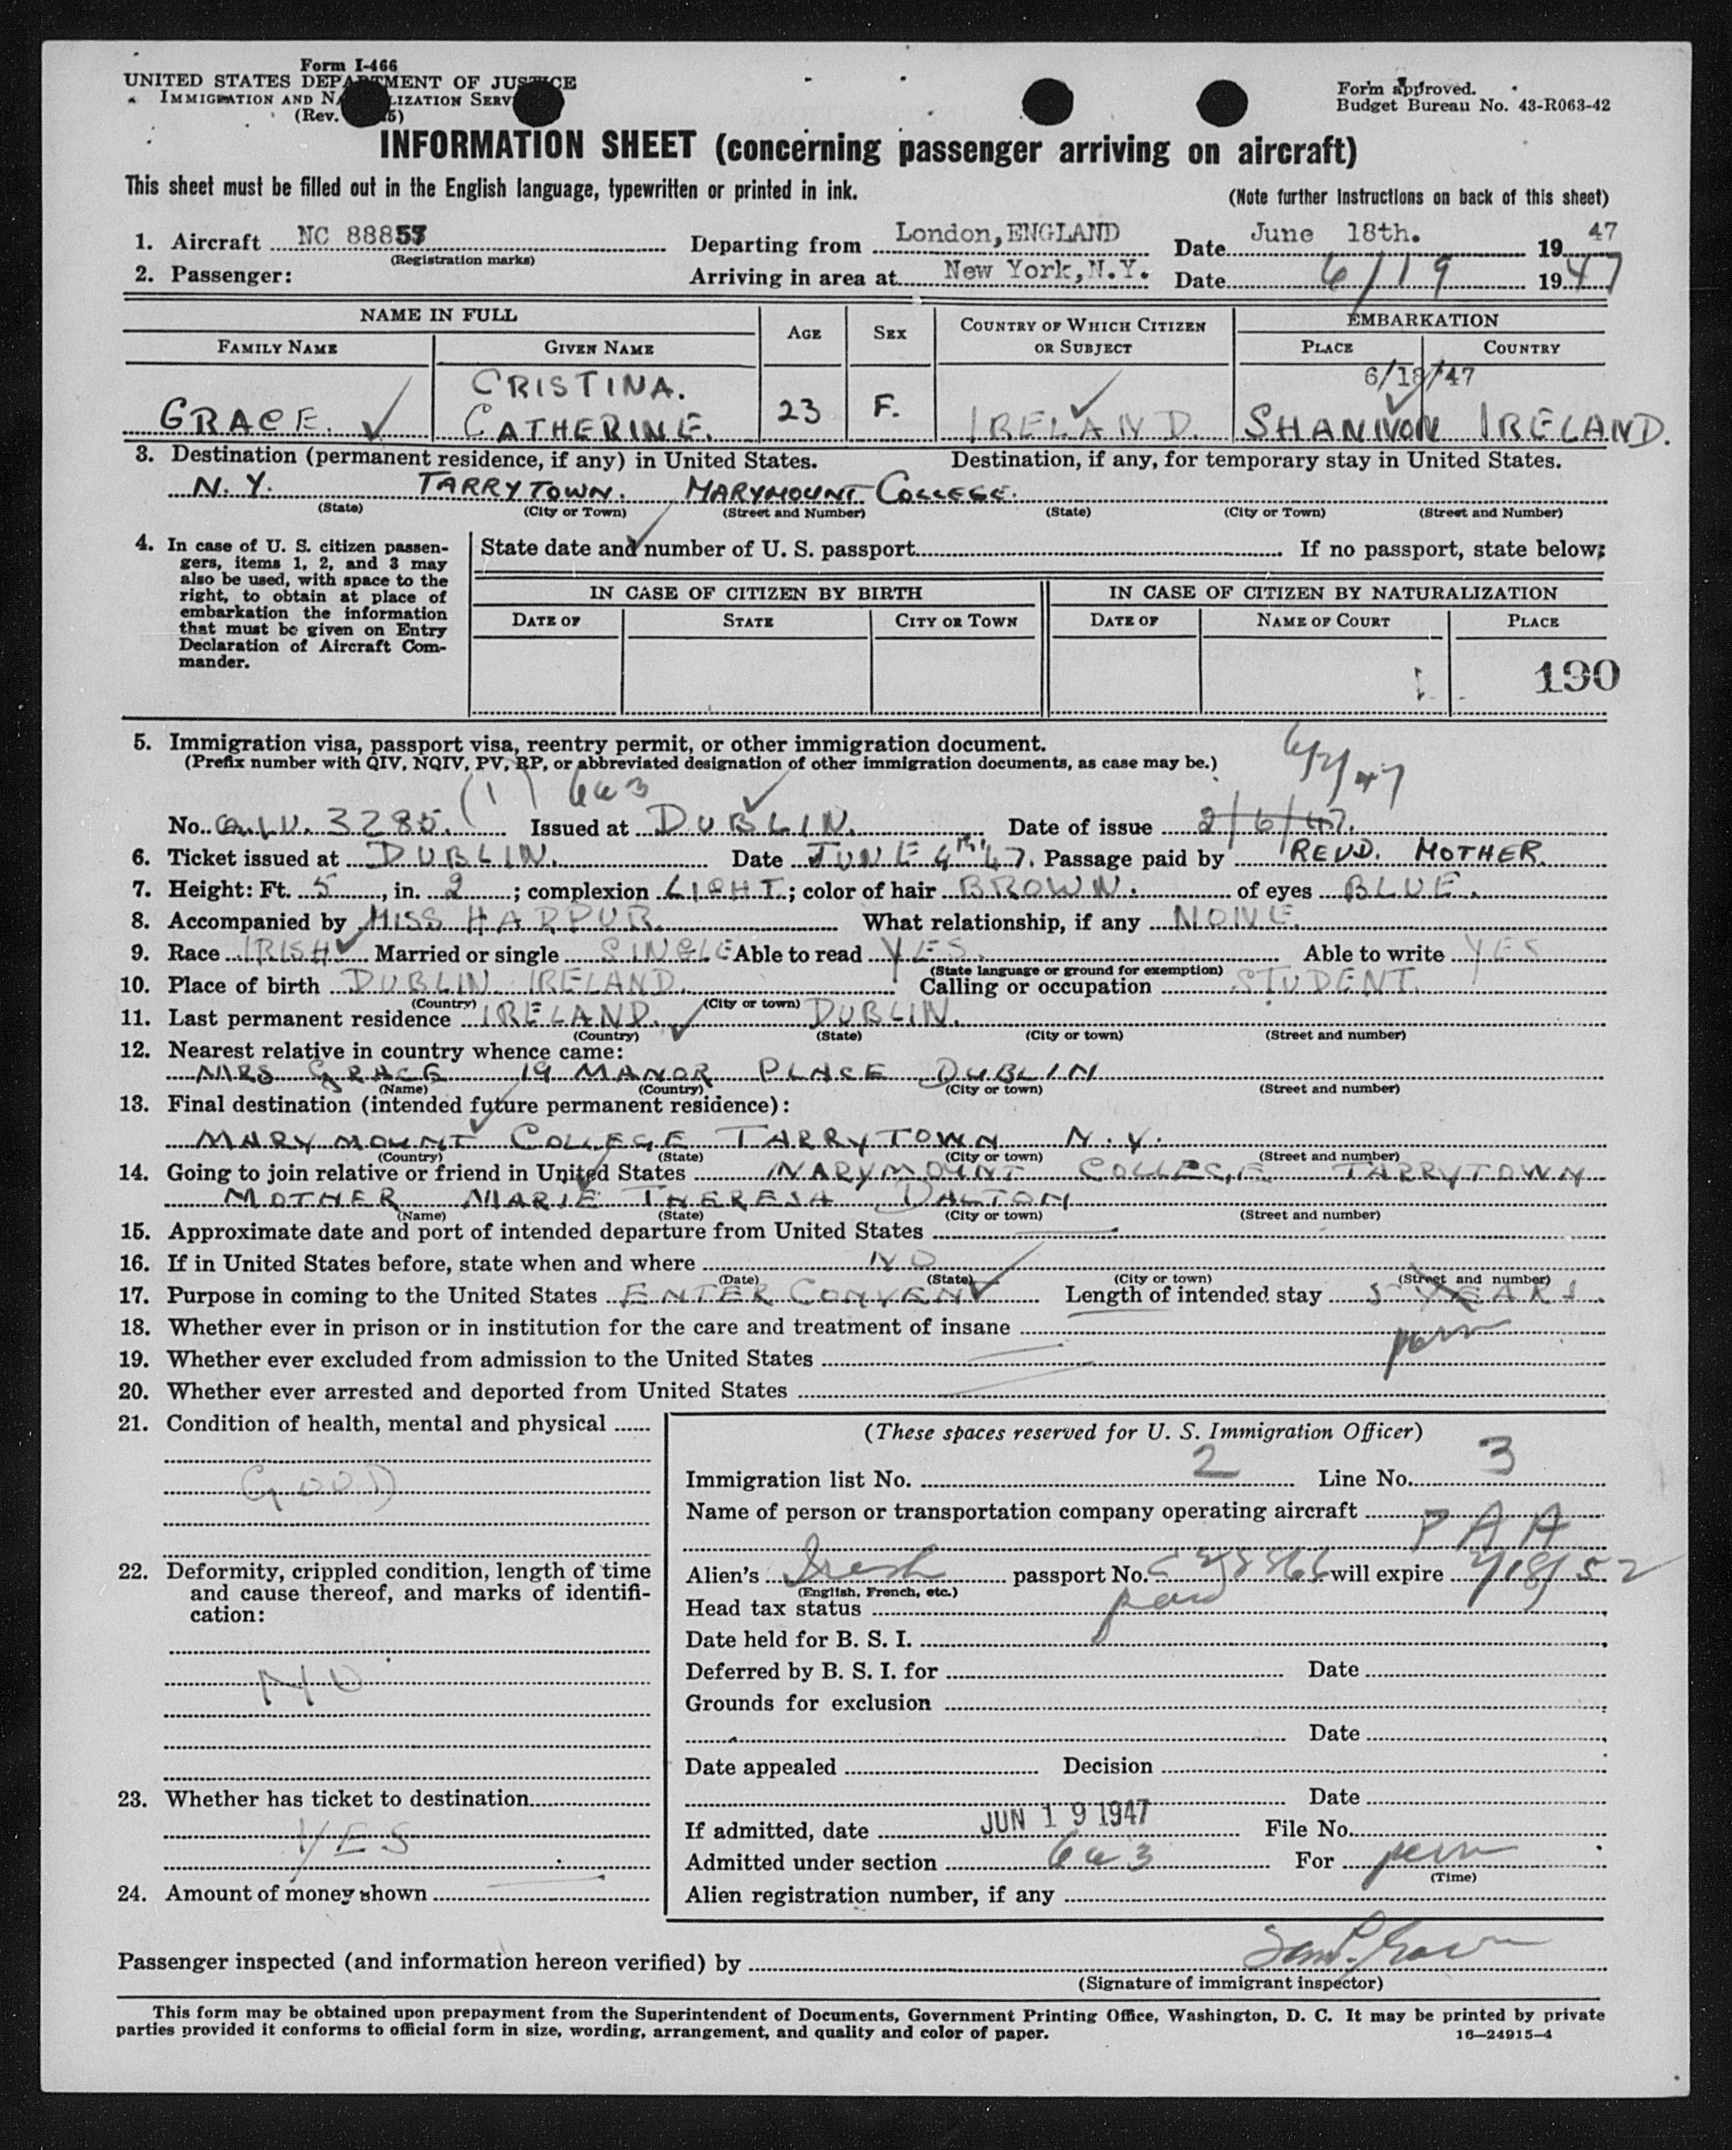 Form I-466
UNITED STATES DEPARTMENT OF JUSTICE
IMMIGRATION AND NATURALIZATION SERV
(Rev. 5)
Form approved.
Budget Bureau No. 43-R063-42
INFORMATION SHEET (concerning passenger arriving on aircraft)
This sheet must be filled out in the English language, typewritten or printed in ink.
(Note further instructions on back of this sheet)
1. Aircraft NC 88857 Departing from London, ENGLAND Date June 18th. 1947
(Registration marks)
2. Passenger: Arriving in area at New York, N.Y. Date 6/19 1947
NAME IN FULL AGE SEX COUNTRY OF WHICH CITIZEN OR SUBJECT EMBARKATION
FAMILY NAME GIVEN NAME PLACE COUNTRY
6/18/47
CRISTINA.
GRACE. CATHERINE. 23 F. IRELAND. SHANNON IRELAND.
3. Destination (permanent residence, if any) in United States. Destination, if any, for temporary stay in United States.
N.Y. TARRYTOWN. MARYMOUNT COLLEGE.
(State) (City or Town) (Street and Number) (State) (City or Town) (Street and Number)
4. In case of U. S. citizen passengers, items 1, 2, and 3 may also be used, with space to the right, to obtain at place of embarkation the information that must be given on Entry Declaration of Aircraft Commander.
State date and number of U. S. passport If no passport, state below:
IN CASE OF CITIZEN BY BIRTH IN CASE OF CITIZEN BY NATURALIZATION
DATE OF STATE CITY OR TOWN DATE OF NAME OF COURT PLACE
190
5. Immigration visa, passport visa, reentry permit, or other immigration document.
(Prefix number with QIV, NQIV, PV, RP, or abbreviated designation of other immigration documents, as case may be.)
(1) 6a3 6/2/47
No. Q.I.V. 3285. Issued at DUBLIN. Date of issue 2/6/47.
6. Ticket issued at DUBLIN. Date JUNE 4th 47. Passage paid by REVD. MOTHER.
7. Height: Ft. 5, in. 2; complexion LIGHT; color of hair BROWN. of eyes BLUE.
8. Accompanied by MISS HARPUR. What relationship, if any NONE.
9. Race IRISH Married or single SINGLE Able to read YES. Able to write YES
(State language or ground for exemption)
10. Place of birth DUBLIN IRELAND. Calling or occupation STUDENT.
(Country) (City or town)
11. Last permanent residence IRELAND. DUBLIN.
(Country) (State) (City or town) (Street and number)
12. Nearest relative in country whence came:
MRS GRACE 19 MANOR PLACE DUBLIN
(Name) (Country) (City or town) (Street and number)
13. Final destination (intended future permanent residence):
MARYMOUNT COLLEGE TARRYTOWN N.Y.
(Country) (State) (City or town) (Street and number)
14. Going to join relative or friend in United States MARYMOUNT COLLEGE TARRYTOWN
MOTHER MARIE THERESA DALTON
(Name) (State) (City or town) (Street and number)
15. Approximate date and port of intended departure from United States
16. If in United States before, state when and where NO
(Date) (State) (City or town) (Street and number)
17. Purpose in coming to the United States ENTER CONVENT Length of intended stay 5 YEARS.
perm
18. Whether ever in prison or in institution for the care and treatment of insane
19. Whether ever excluded from admission to the United States
20. Whether ever arrested and deported from United States
21. Condition of health, mental and physical
GOOD
22. Deformity, crippled condition, length of time and cause thereof, and marks of identification:
NO
23. Whether has ticket to destination
YES
24. Amount of money shown
(These spaces reserved for U. S. Immigration Officer)
Immigration list No. 2 Line No. 3
Name of person or transportation company operating aircraft PAA
Alien's Irish passport No. will expire 2/18/52
(English, French, etc.)
Head tax status paid
Date held for B. S. I.
Deferred by B. S. I. for Date
Grounds for exclusion
Date
Date appealed Decision
Date
If admitted, date JUN 19 1947 File No.
Admitted under section 6a3 For perm
(Time)
Alien registration number, if any
Passenger inspected (and information hereon verified) by
(Signature of immigrant inspector)
This form may be obtained upon prepayment from the Superintendent of Documents, Government Printing Office, Washington, D. C. It may be printed by private
parties provided it conforms to official form in size, wording, arrangement, and quality and color of paper.
16—24915-4